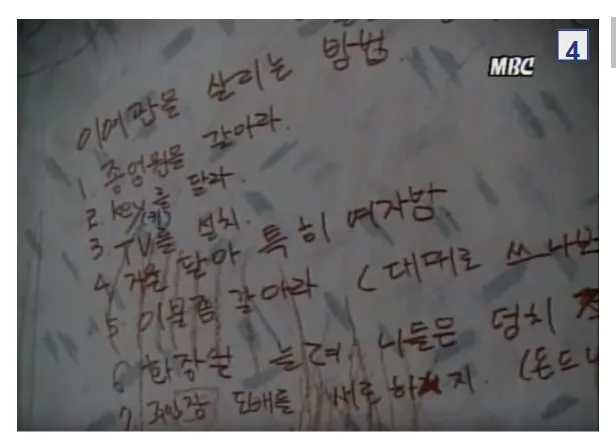 4
MBC
이 여관을 살리는 방법.
1. 종업원을 갈아라.
2. key를 달라.
(키)
3. TV를 설치.
4. 거울 달아 특히 여자방.
5. 이불좀 갈아라 (대패로 쓰
6 화장실 늘려. 니들은 덩치
7. 도배를 새로 하 지. (돈드